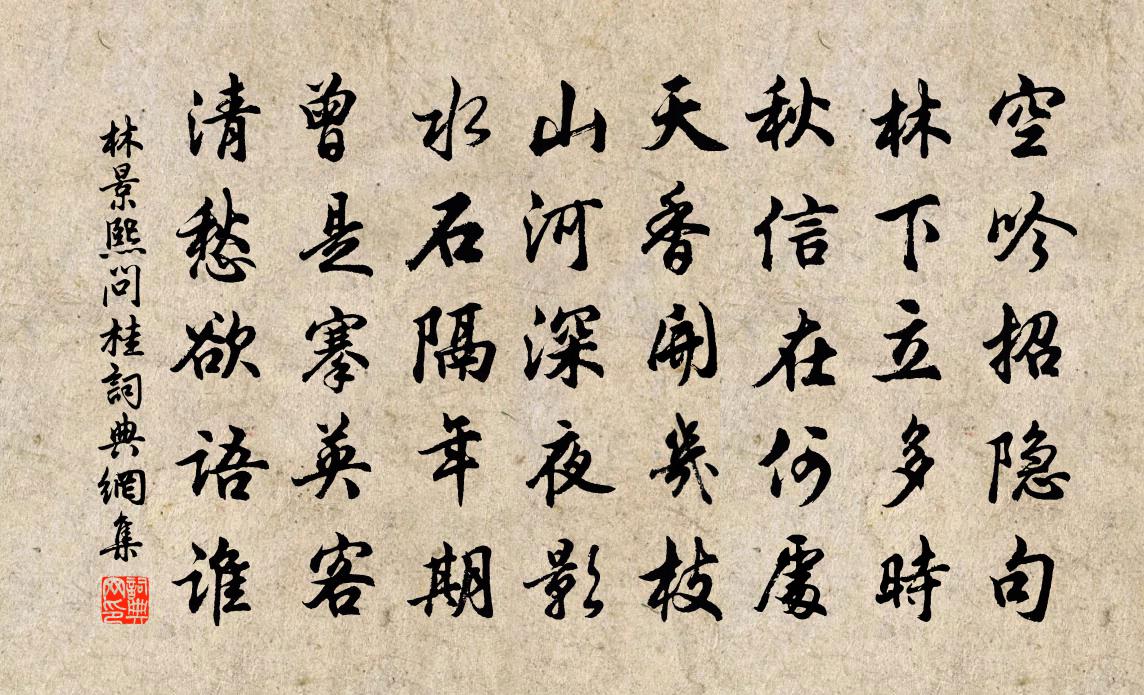 空吟招隐句
林下立多時
秋信在何處
天香開幾枝
山河深夜影
水石隔年期
曾是搴英客
清愁欲語誰
林景熙問桂詞典網集
詞典网印